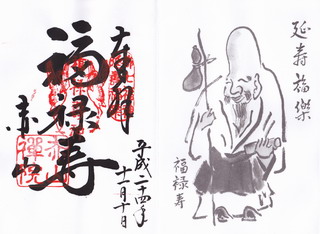 延寿福楽
福禄寿
奉拝
福禄寿
赤山
平成二十四年
十一月十日